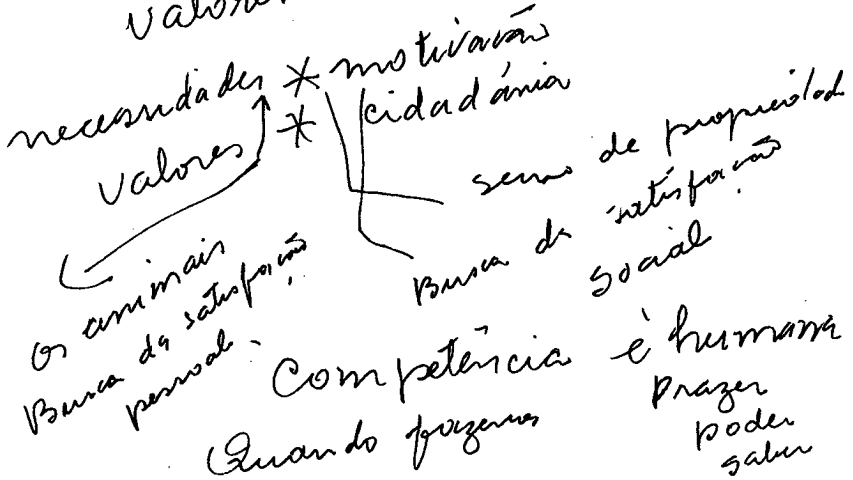 valores
necessidades * motivação
valores * cidadánia
senso de propriedade
Busca da satisfação
social
os animais
Busca da satisfação
pessoal.
Competência é humana
Quando fazemos
Prazer
poder
saber